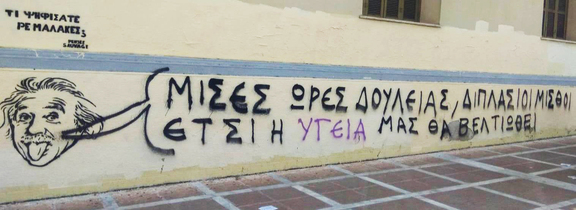 ΤΙ ΨΗΦΙΣΑΤΕ
ΡΕ ΜΑΛΑΚΕΣ;
ΜΙΣΕΣ ΩΡΕΣ ΔΟΥΛΕΙΑΣ, ΔΙΠΛΑΣΙΟΙ ΜΙΣΘΟΙ
ΕΤΣΙ Η ΥΓΕΙΑ ΜΑΣ ΘΑ ΒΕΛΤΙΩΘΕΙ